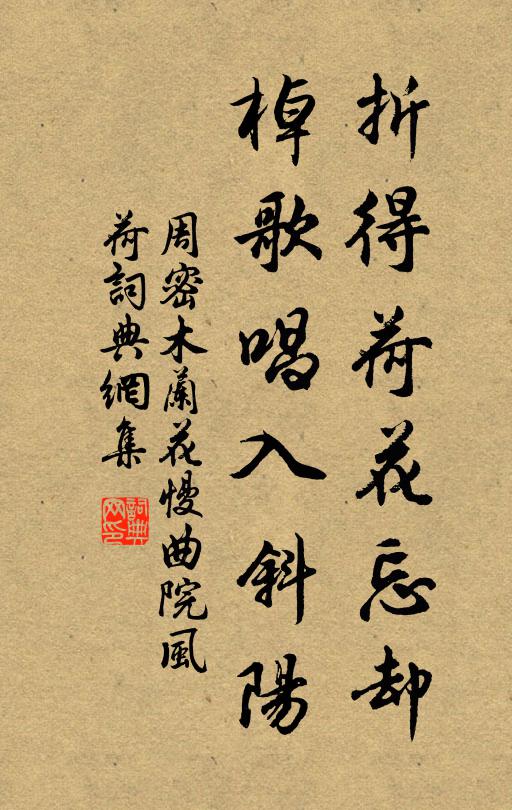 折得荷花忘却
棹歌唱入斜陽
周密木蘭花慢曲院風
荷詞典網集
詞典
网印